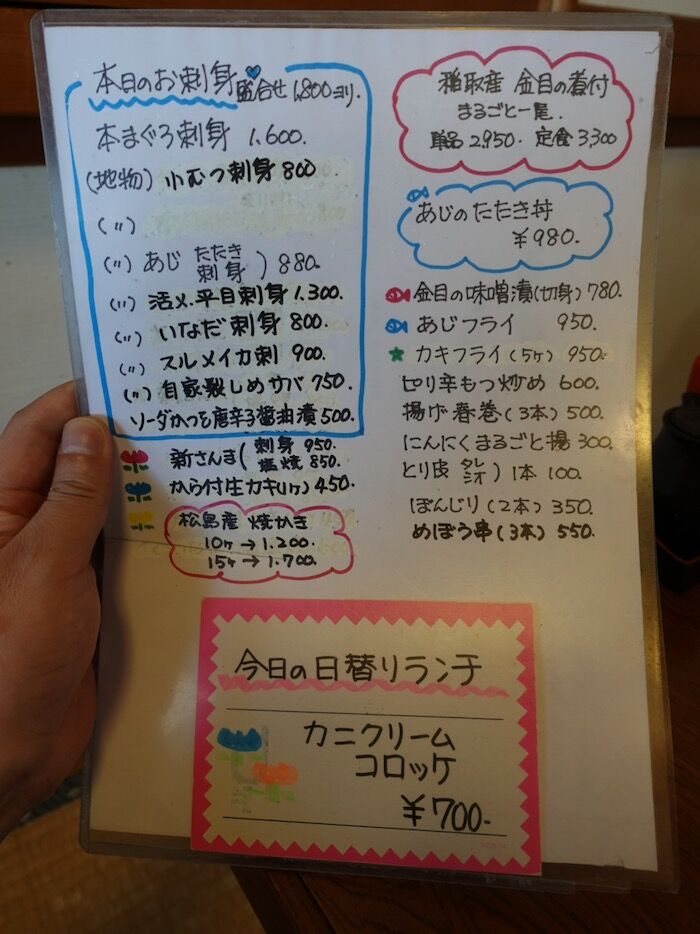 本日のお刺身
盛合せ 1,800ヨリ.
本まぐろ刺身 1.600.
(地物) 小むつ刺身 800
(〃)
(〃) あじ たたき 刺身 ) 880.
(〃) 活〆平目刺身 1.300.
(〃) いなだ刺身 800.
(〃) スルメイカ刺 900.
(〃) 自家製しめサバ 750.
ソーダかつを唐辛子醤油漬 500.
新さんま ( 刺身 950.
塩焼 850.
から付生カキ(1ヶ) 450.
松島産 焼かき
10ヶ→1.200.
15ヶ→1.700.
稲取産 金目の煮付
まるごと一尾.
単品 2,950. 定食 3,300
あじのたたき丼
¥980.
金目の味噌漬(切身) 780.
あじフライ 950.
カキフライ(5ヶ) 950.
ピリ辛もつ炒め 600.
揚げ春巻(3本) 500.
にんにくまるごと揚 300.
とり皮 タレ シオ ) 1本 100.
ぼんじり(2本) 350.
めぼう串(3本) 550.
今日の日替りランチ
カニクリーム
コロッケ
¥700-